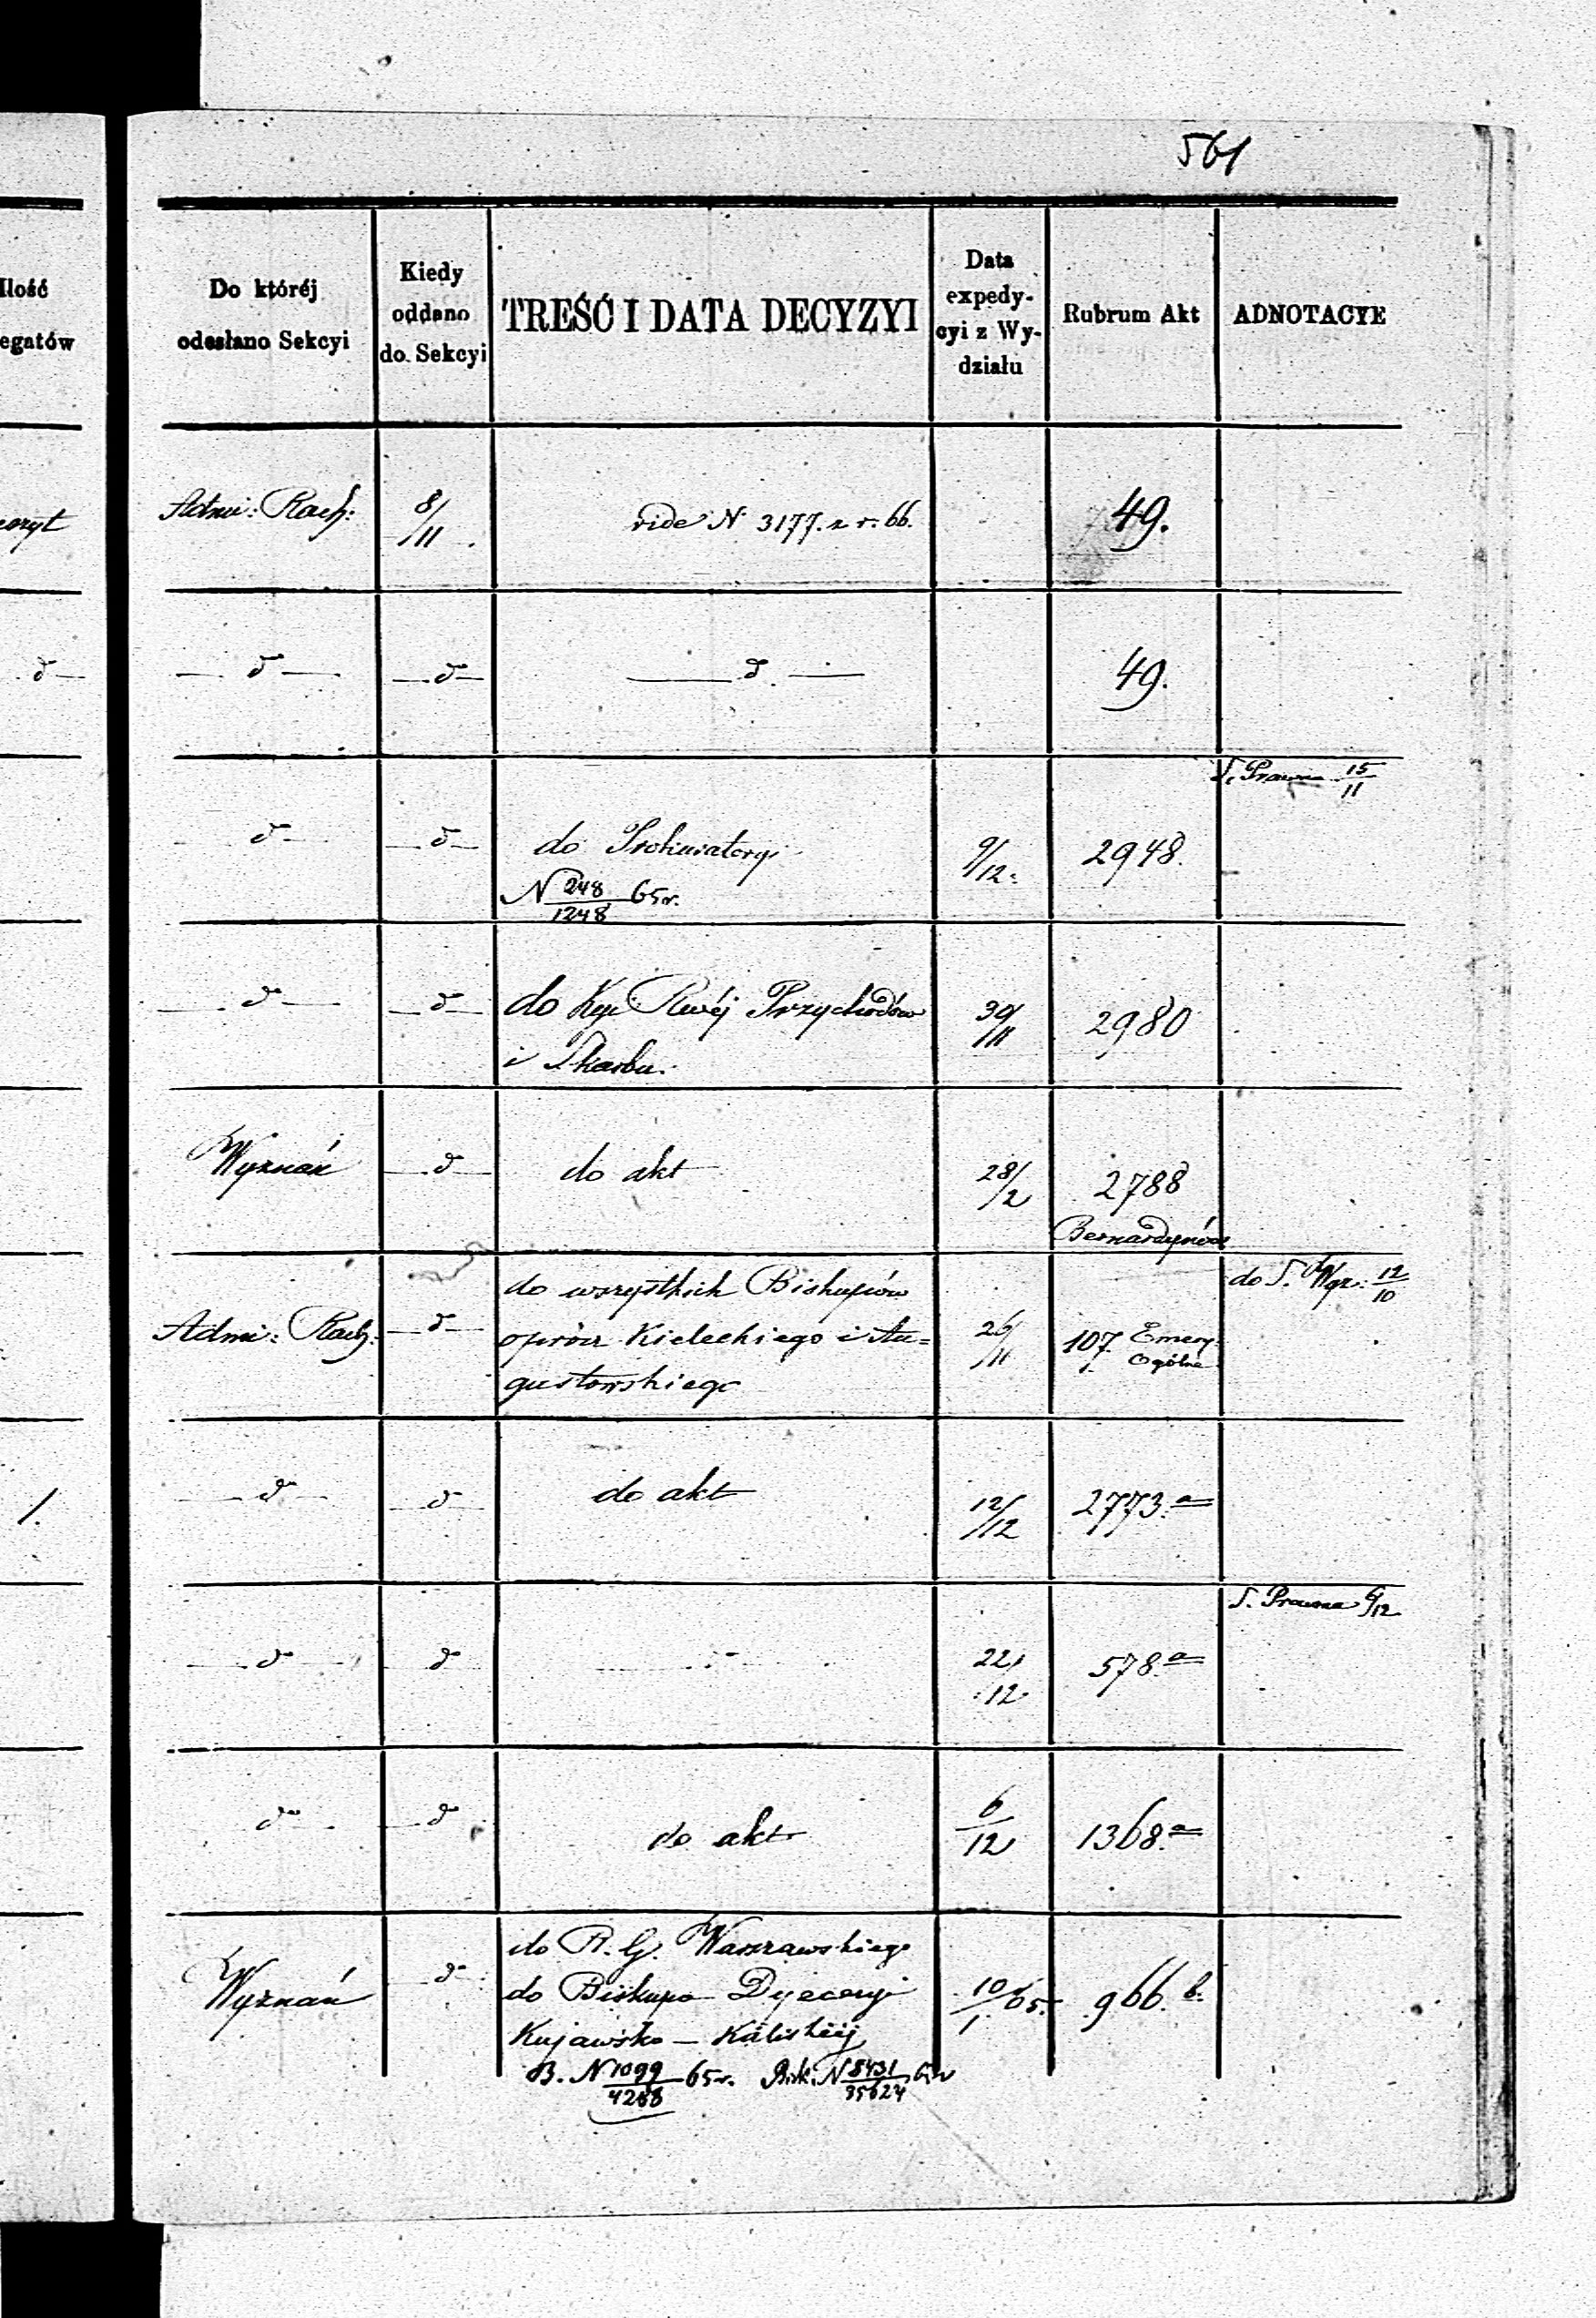 561
Ilość
egatów
Do któréj
odesłano Sekcyi
Kiedy
oddano
do Sekcyi
TREŚĆ I DATA DECYZYI
Data
expedy-
cyi z Wy-
działu
Rubrum Akt
ADNOTACYE
Admi: Rach:
8/11
vide N 3177. z r. 66.
49.
d
d
d
d
49.
S. Prawna 15/11
d
d
do Prokuratoryi
N 248/1248 65 r.
9/12
2948.
d
d
do Kₒyi Rwéj Przychodów
i Skarbu.
30/11
2980
Wyznań
d
do akt
28/2
2788
Bernardynów
do S. Wyz: 12/10
Admi: Rach:
d
do wszystkich Biskupów
oprócz Kieleckiego i Au=
gustowskiego
26/11
107 Emery.
Ogólne
1.
d
d
do akt
12/12
2773. a
S. Prawna 6/12
d
d
22/12
578. a
d
d
do akt
6/12
1368. a
Wyznań
d
do R. G. Warszawskiego
do Biskupa Dyecezyi
Kujawsko - Kaliskiéj
10/1 65.
966. b.
B. N 1099/4288 65 r. Bisk. N 8431/35624